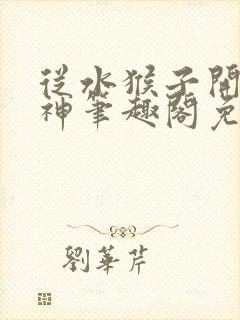 從水猴子開
神筆趣閣免
劉華芹